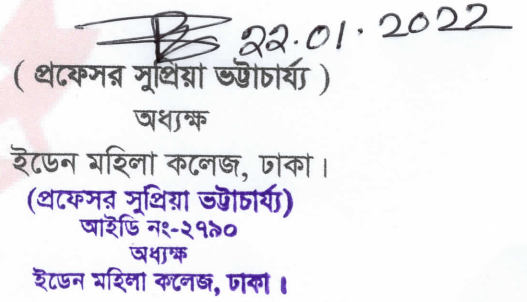 22.01.2022
( প্রফেসর সুপ্রিয়া ভট্টাচার্য্য )
অধ্যক্ষ
ইডেন মহিলা কলেজ, ঢাকা।
(প্রফেসর সুপ্রিয়া ভট্টাচার্য্য)
আইডি নং-২৭৯০
অধ্যক্ষ
ইডেন মহিলা কলেজ, ঢাকা।